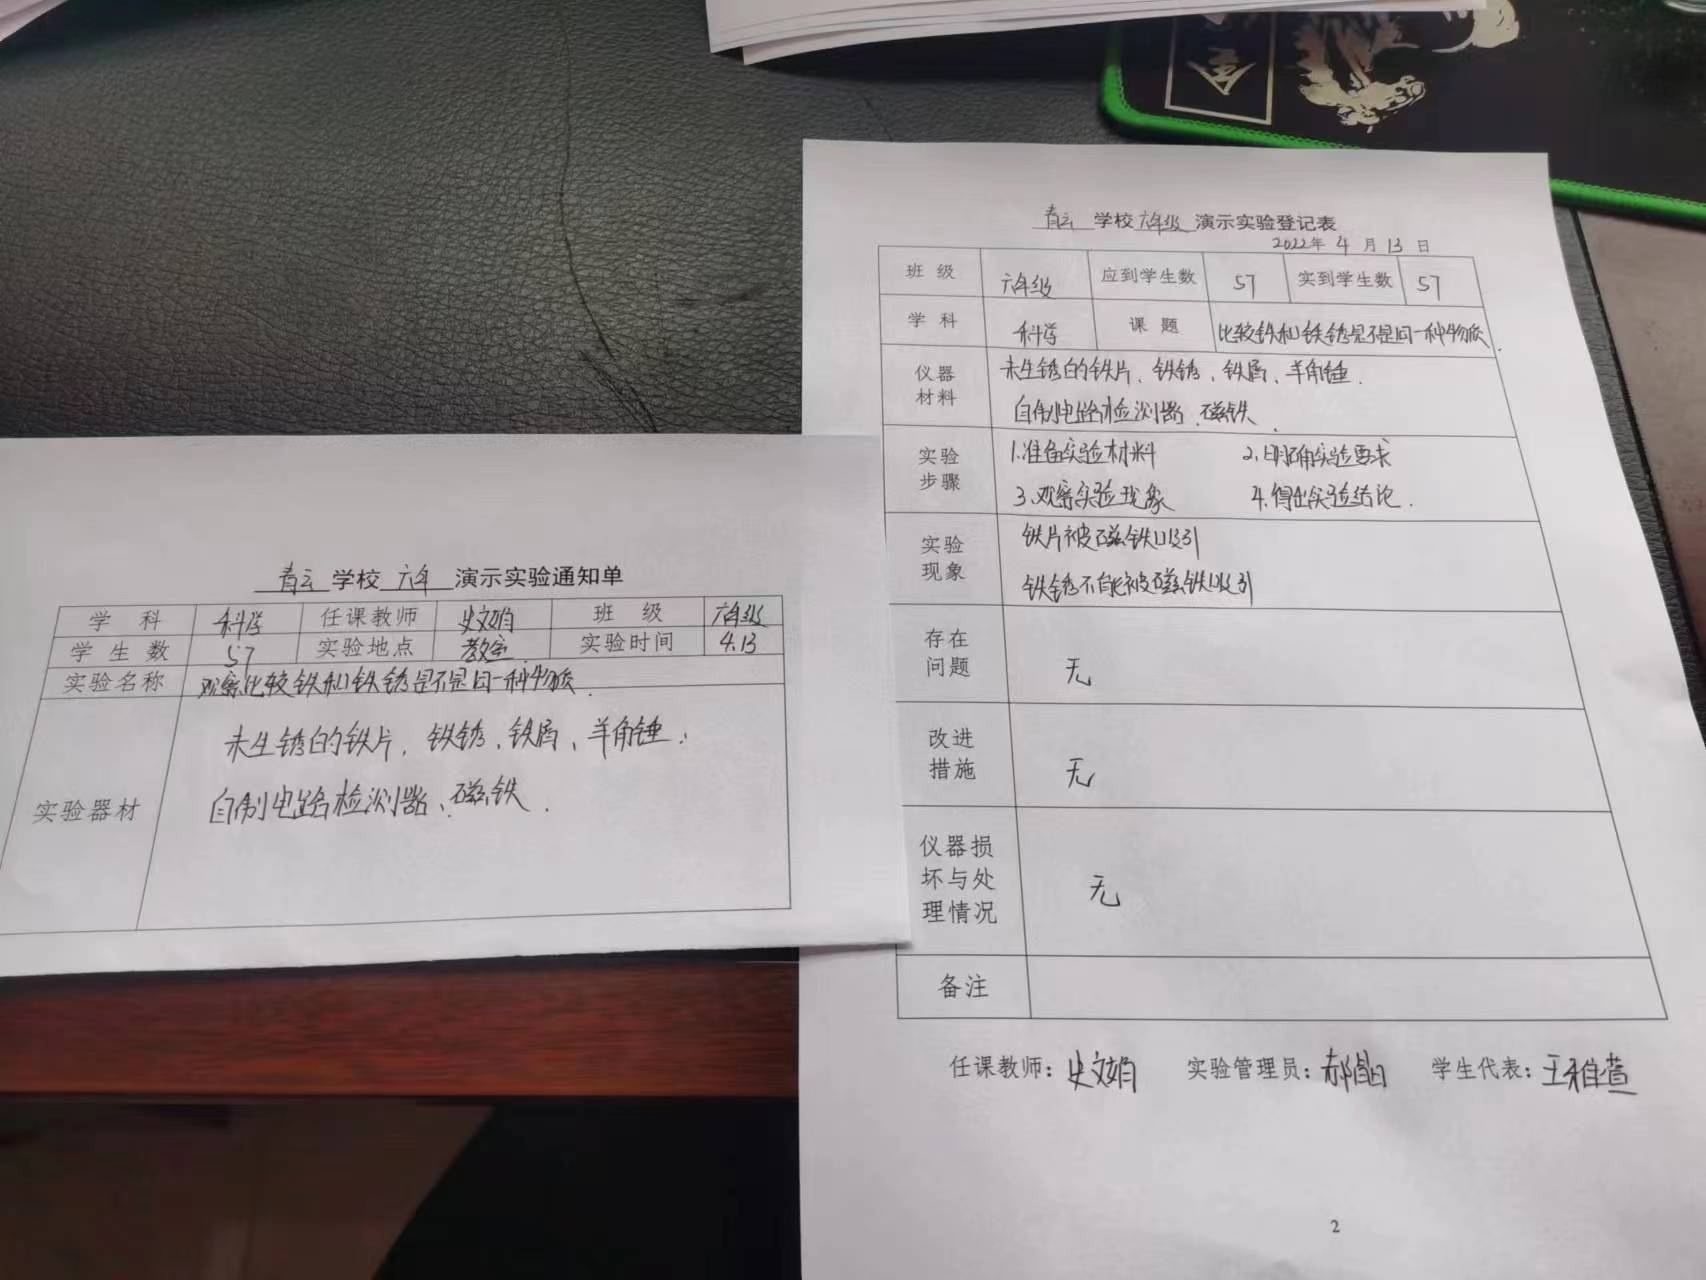 青云 学校 六年 演示实验通知单
学 科 科学 任课教师 史文娟 班 级 六年级
学 生 数 57 实验地点 教室 实验时间 4.13
实验名称 观察比较铁和铁锈是不是同一种物质.
实验器材
未生锈的铁片、铁锈、铁屑、羊角锤、
自制电路检测器、磁铁.
青云 学校 六年级 演示实验登记表
2022年 4 月 13 日
班 级 六年级 应到学生数 57 实到学生数 57
学 科 科学 课 题 比较铁和铁锈是不是同一种物质.
仪器材料
未生锈的铁片、铁锈、铁屑、羊角锤.
自制电路检测器、磁铁.
实验步骤
1.准备实验材料 2.明确实验要求
3.观察实验现象 4.得出实验结论.
实验现象
铁片被磁铁吸引
铁锈不能被磁铁吸引
存在问题 无
改进措施 无
仪器损坏与处理情况 无
备注
任课教师：史文娟 实验管理员：郝晶 学生代表：王雅萱
2